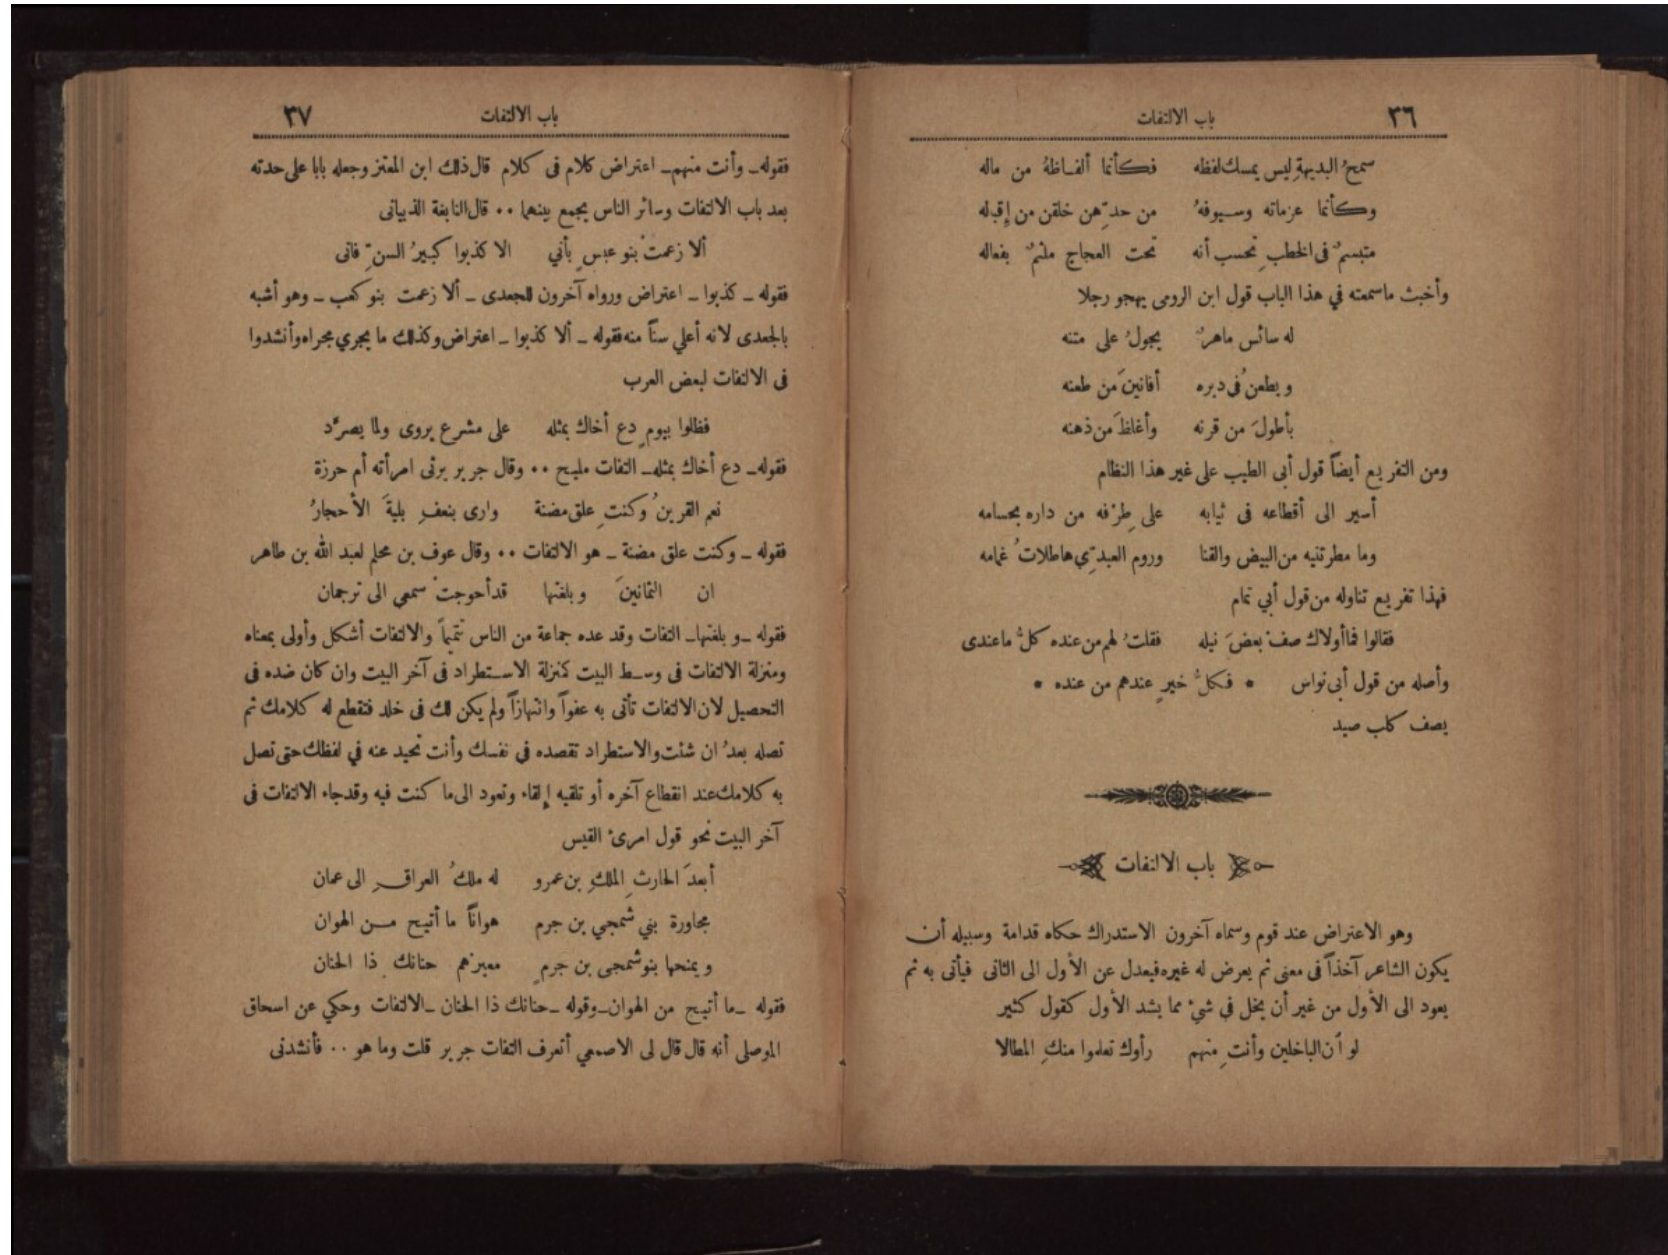 ٣٦
باب الالتفات
سمحُ البديهةِ ليس يمسك لفظه فكأنما ألفاظهُ من ماله
وكأنما عزماته وسيوفهُ من حدّهن خلقن من إقباله
متبسمٌ في الخطب تحسب أنه تحت العجاج ملثمٌ بفعاله
وأخبث ماسمعته في هذا الباب قول ابن الرومى يهجو رجلا
له سائس ماهرٌ يجولُ على متنه
ويطعنُ فى دبره أفانينَ من طعنه
بأطولَ من قرنه وأغلظَ من ذهنه
ومن التفريع أيضاً قول أبى الطيب على غير هذا النظام
أسير الى أقطاعه فى ثيابه على طِرْفه من داره بحسامه
وما مطرتنيه من البيض والقنا وروم العبدِّي هاطلاتُ غمامه
فهذا تفريع تناوله من قول أبي تمام
فقالوا فما أولاك صفْ بعضَ نيله فقلتُ لهم من عنده كلُّ ماعندى
وأصله من قول أبى نواس * فكلُّ خيرٍ عندهم من عنده *
يصف كلب صيد
باب الالتفات
وهو الاعتراض عند قوم وسماه آخرون الاستدراك حكاه قدامة وسبيله أن
يكون الشاعر آخذاً فى معنى ثم يعرض له غيره فيعدل عن الأول الى الثانى فيأتى به ثم
يعود الى الأول من غير أن يخل في شئ مما يشد الأول كقول كثير
لو أن الباخلين وأنتِ منهم رأوك تعلموا منكِ المطالا
٣٧
باب الالتفات
فقوله ـ وأنت منهم ـ اعتراض كلام فى كلام قال ذلك ابن المعتز وجعله بابا على حدته
بعد باب الالتفات وسائر الناس يجمع بينهما ٠٠ قال النابغة الذبيانى
ألا زعمتْ بنو عبسٍ بأني الا كذبوا كبيرُ السنِّ فانى
فقوله ـ كذبوا ـ اعتراض ورواه آخرون للجعدى ـ ألا زعمت بنو كعب ـ وهو أشبه
بالجعدى لانه أعلي سناً منه فقوله ـ ألا كذبوا ـ اعتراض وكذلك ما يجري مجراه وأنشدوا
فى الالتفات لبعض العرب
فظلوا بيومٍ دع أخاك بمثله على مشرع يروى ولما يصرَّد
فقوله ـ دع أخاك بمثله ـ التفات مليح ٠٠ وقال جرير يرثى امرأته أم حرزة
نعم القرينُ وكنتِ علق مضنة وارى بنعفِ بليةَ الأحجارُ
فقوله ـ وكنت علق مضنة ـ هو الالتفات ٠٠ وقال عوف بن محلم لعبد الله بن طاهر
ان الثمانينَ وبلغتها قد أحوجتْ سمعي الى ترجمان
فقوله ـ وبلغتها ـ التفات وقد عده جماعة من الناس تتميماً والالتفات أشكل وأولى بمعناه
ومنزلة الالتفات فى وسط البيت كمنزلة الاستطراد فى آخر البيت وان كان ضده فى
التحصيل لان الالتفات تأتى به عفواً وانتهازاً ولم يكن لك فى خلد فتقطع له كلامك ثم
تصله بعدُ ان شئت والاستطراد تقصده فى نفسك وأنت تحيد عنه في لفظك حتى تصل
به كلامك عند انقطاع آخره أو تلقيه إلقاء وتعود الى ما كنت فيه وقد جاء الالتفات فى
آخر البيت نحو قول امرئ القيس
أبعدَ الحارثِ الملكِ بن عمرو له ملكُ العراقِ الى عمان
مجاورة بني شمجي بن جرم هواناً ما أتيح من الهوان
ويمنحها بنو شمجى بن جرمٍ معيزهم حنانك ذا الحنان
فقوله ـ ما أتيح من الهوان ـ وقوله ـ حنانك ذا الحنان ـ الالتفات وحكي عن اسحاق
الموصلى أنه قال قال لى الاصمعي أتعرف التفات جرير قلت وما هو ٠٠ فأنشدنى